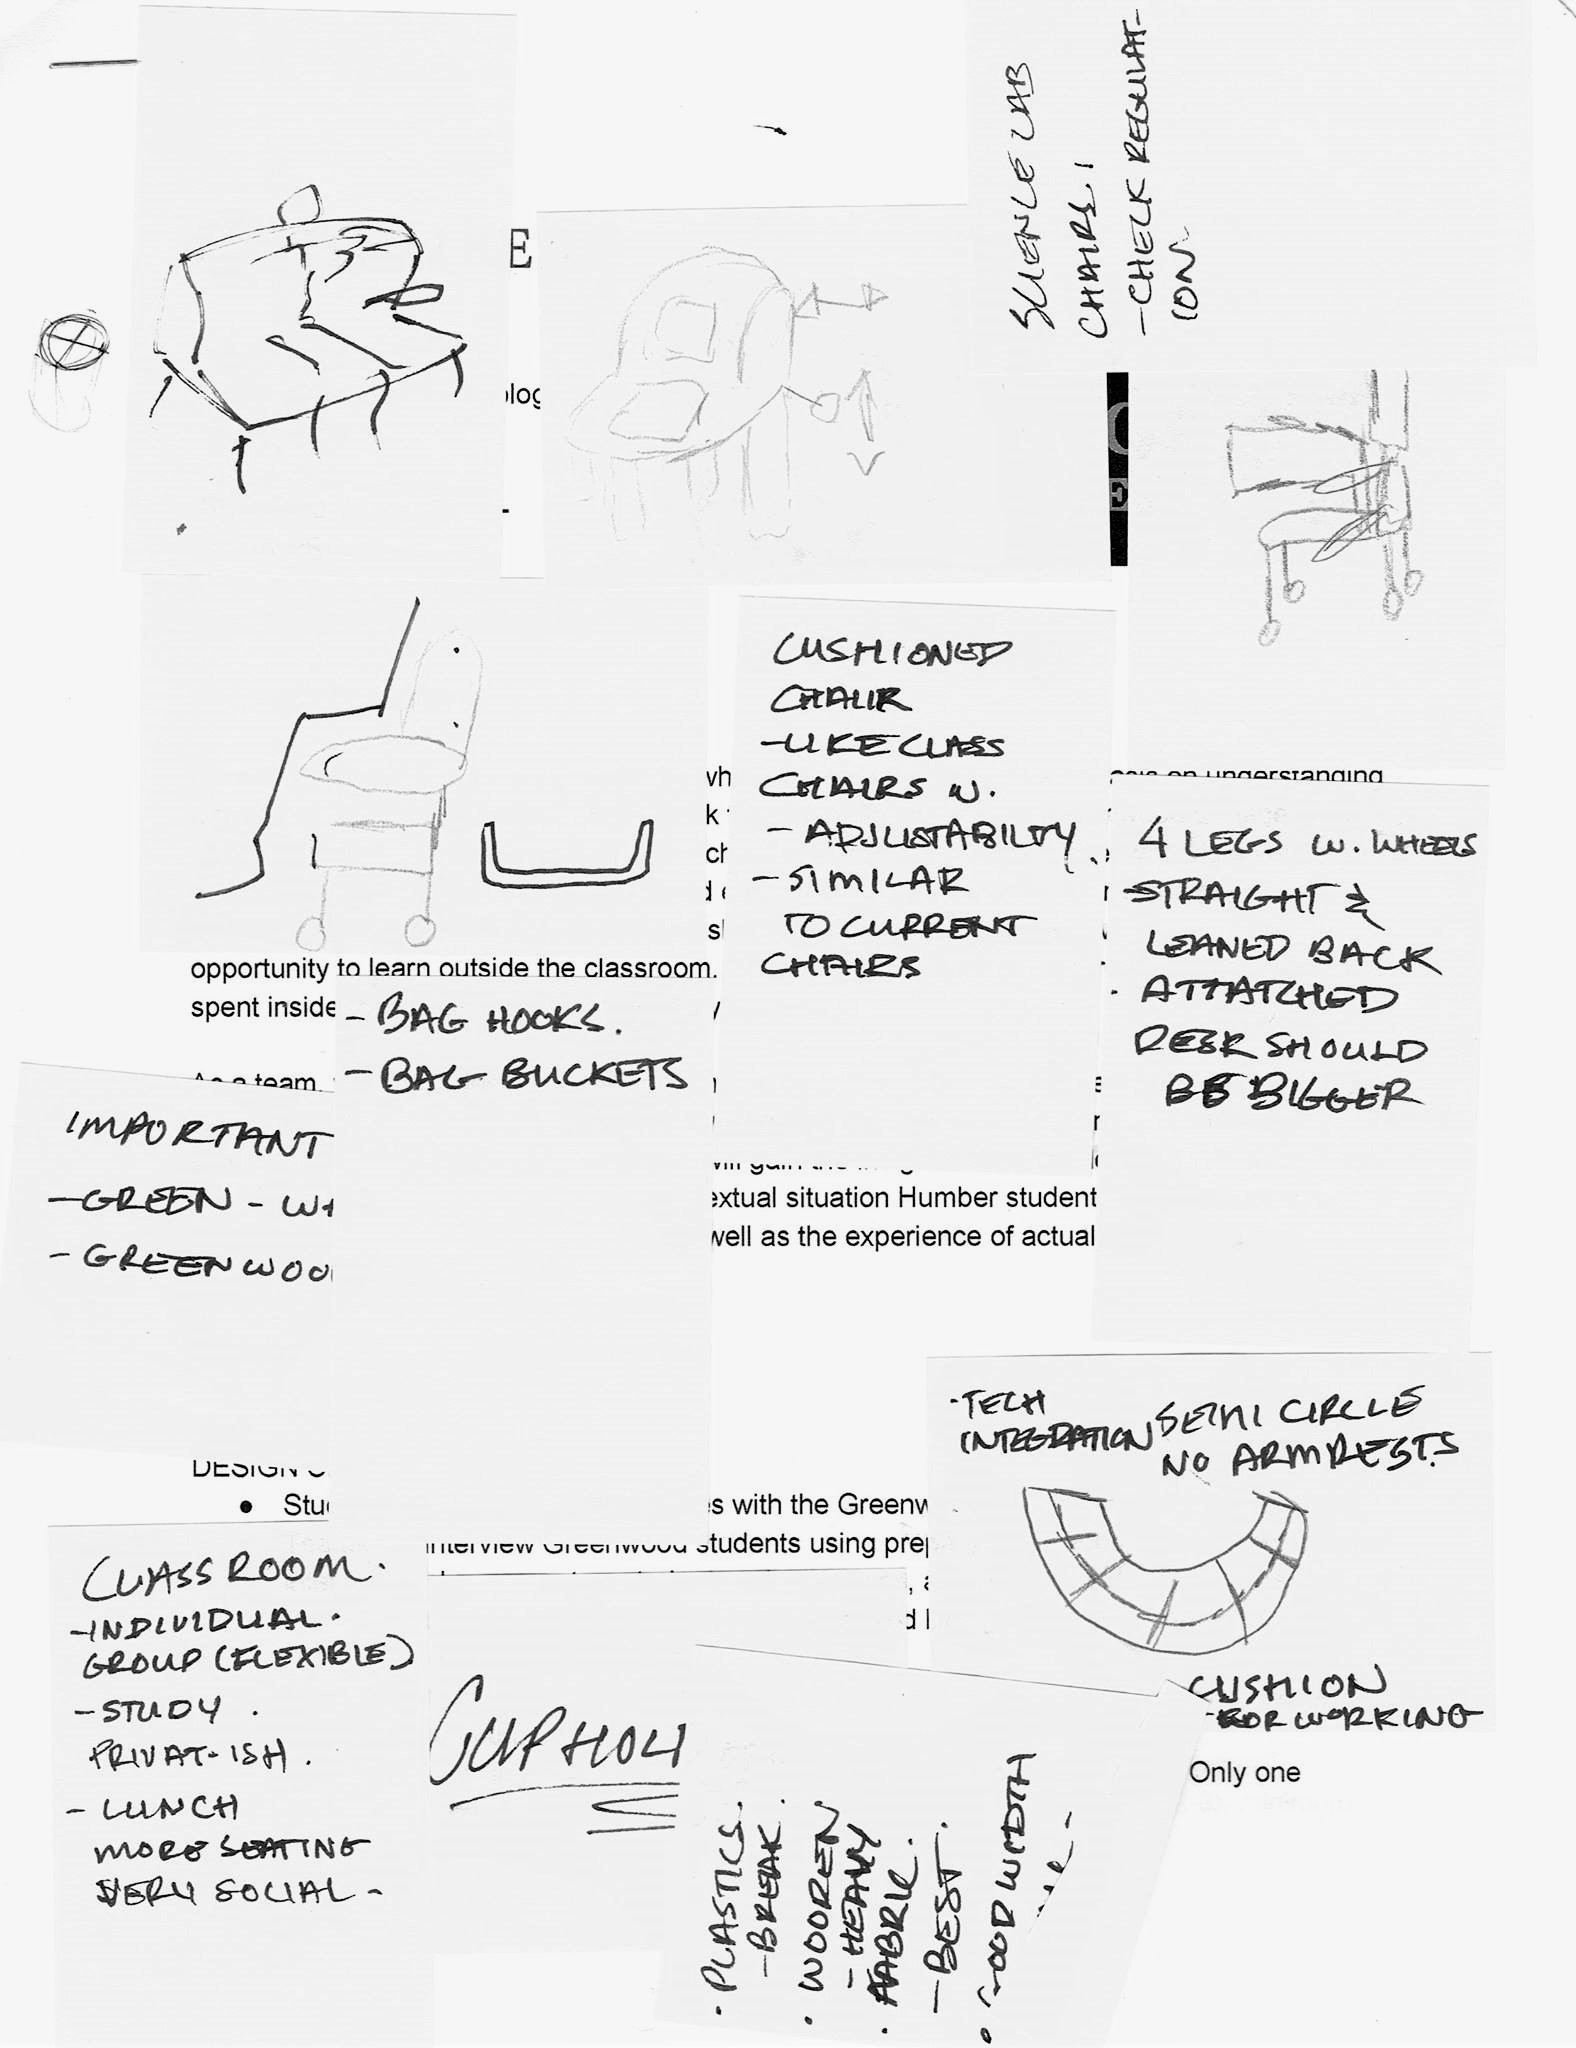 SCIENCE LAB
CHAIRS.
- CHECK REGULAT-
ION
E
olog
CUSHIONED
CHAIR
- LIKE CLASS
CHAIRS W.
- ADJUSTABILTY
- SIMILAR
TO CURRENT
CHAIRS
on understanding
4 LEGS W. WHEELS
STRAIGHT &
LEANED BACK
ATTATCHED
DESK SHOULD
BE BIGGER
opportunity to learn outside the classroom.
spent inside
- BAG HOOKS.
- BAG BUCKETS
As a team,
IMPORTANT
- GREEN - WH
- GREENWOO
extual situation Humber student
well as the experience of actual
- TECH
INTEGRATION
SEMI CIRCLE
NO ARMRESTS
DESIGN
• Stu
s with the Greenw
interview Greenwood students using prep
CLASSROOM.
- INDIVIDUAL.
GROUP (FLEXIBLE)
- STUDY.
PRIVAT-ISH.
- LUNCH
MORE SEATING
VERY SOCIAL -
CUP HOL
CUSHION
- FOR WORKING
Only one
• PLASTICS.
- BREAK.
• WOODEN
- HEAVY
• FABRIC.
- BEST.
• GOOD WIDTH